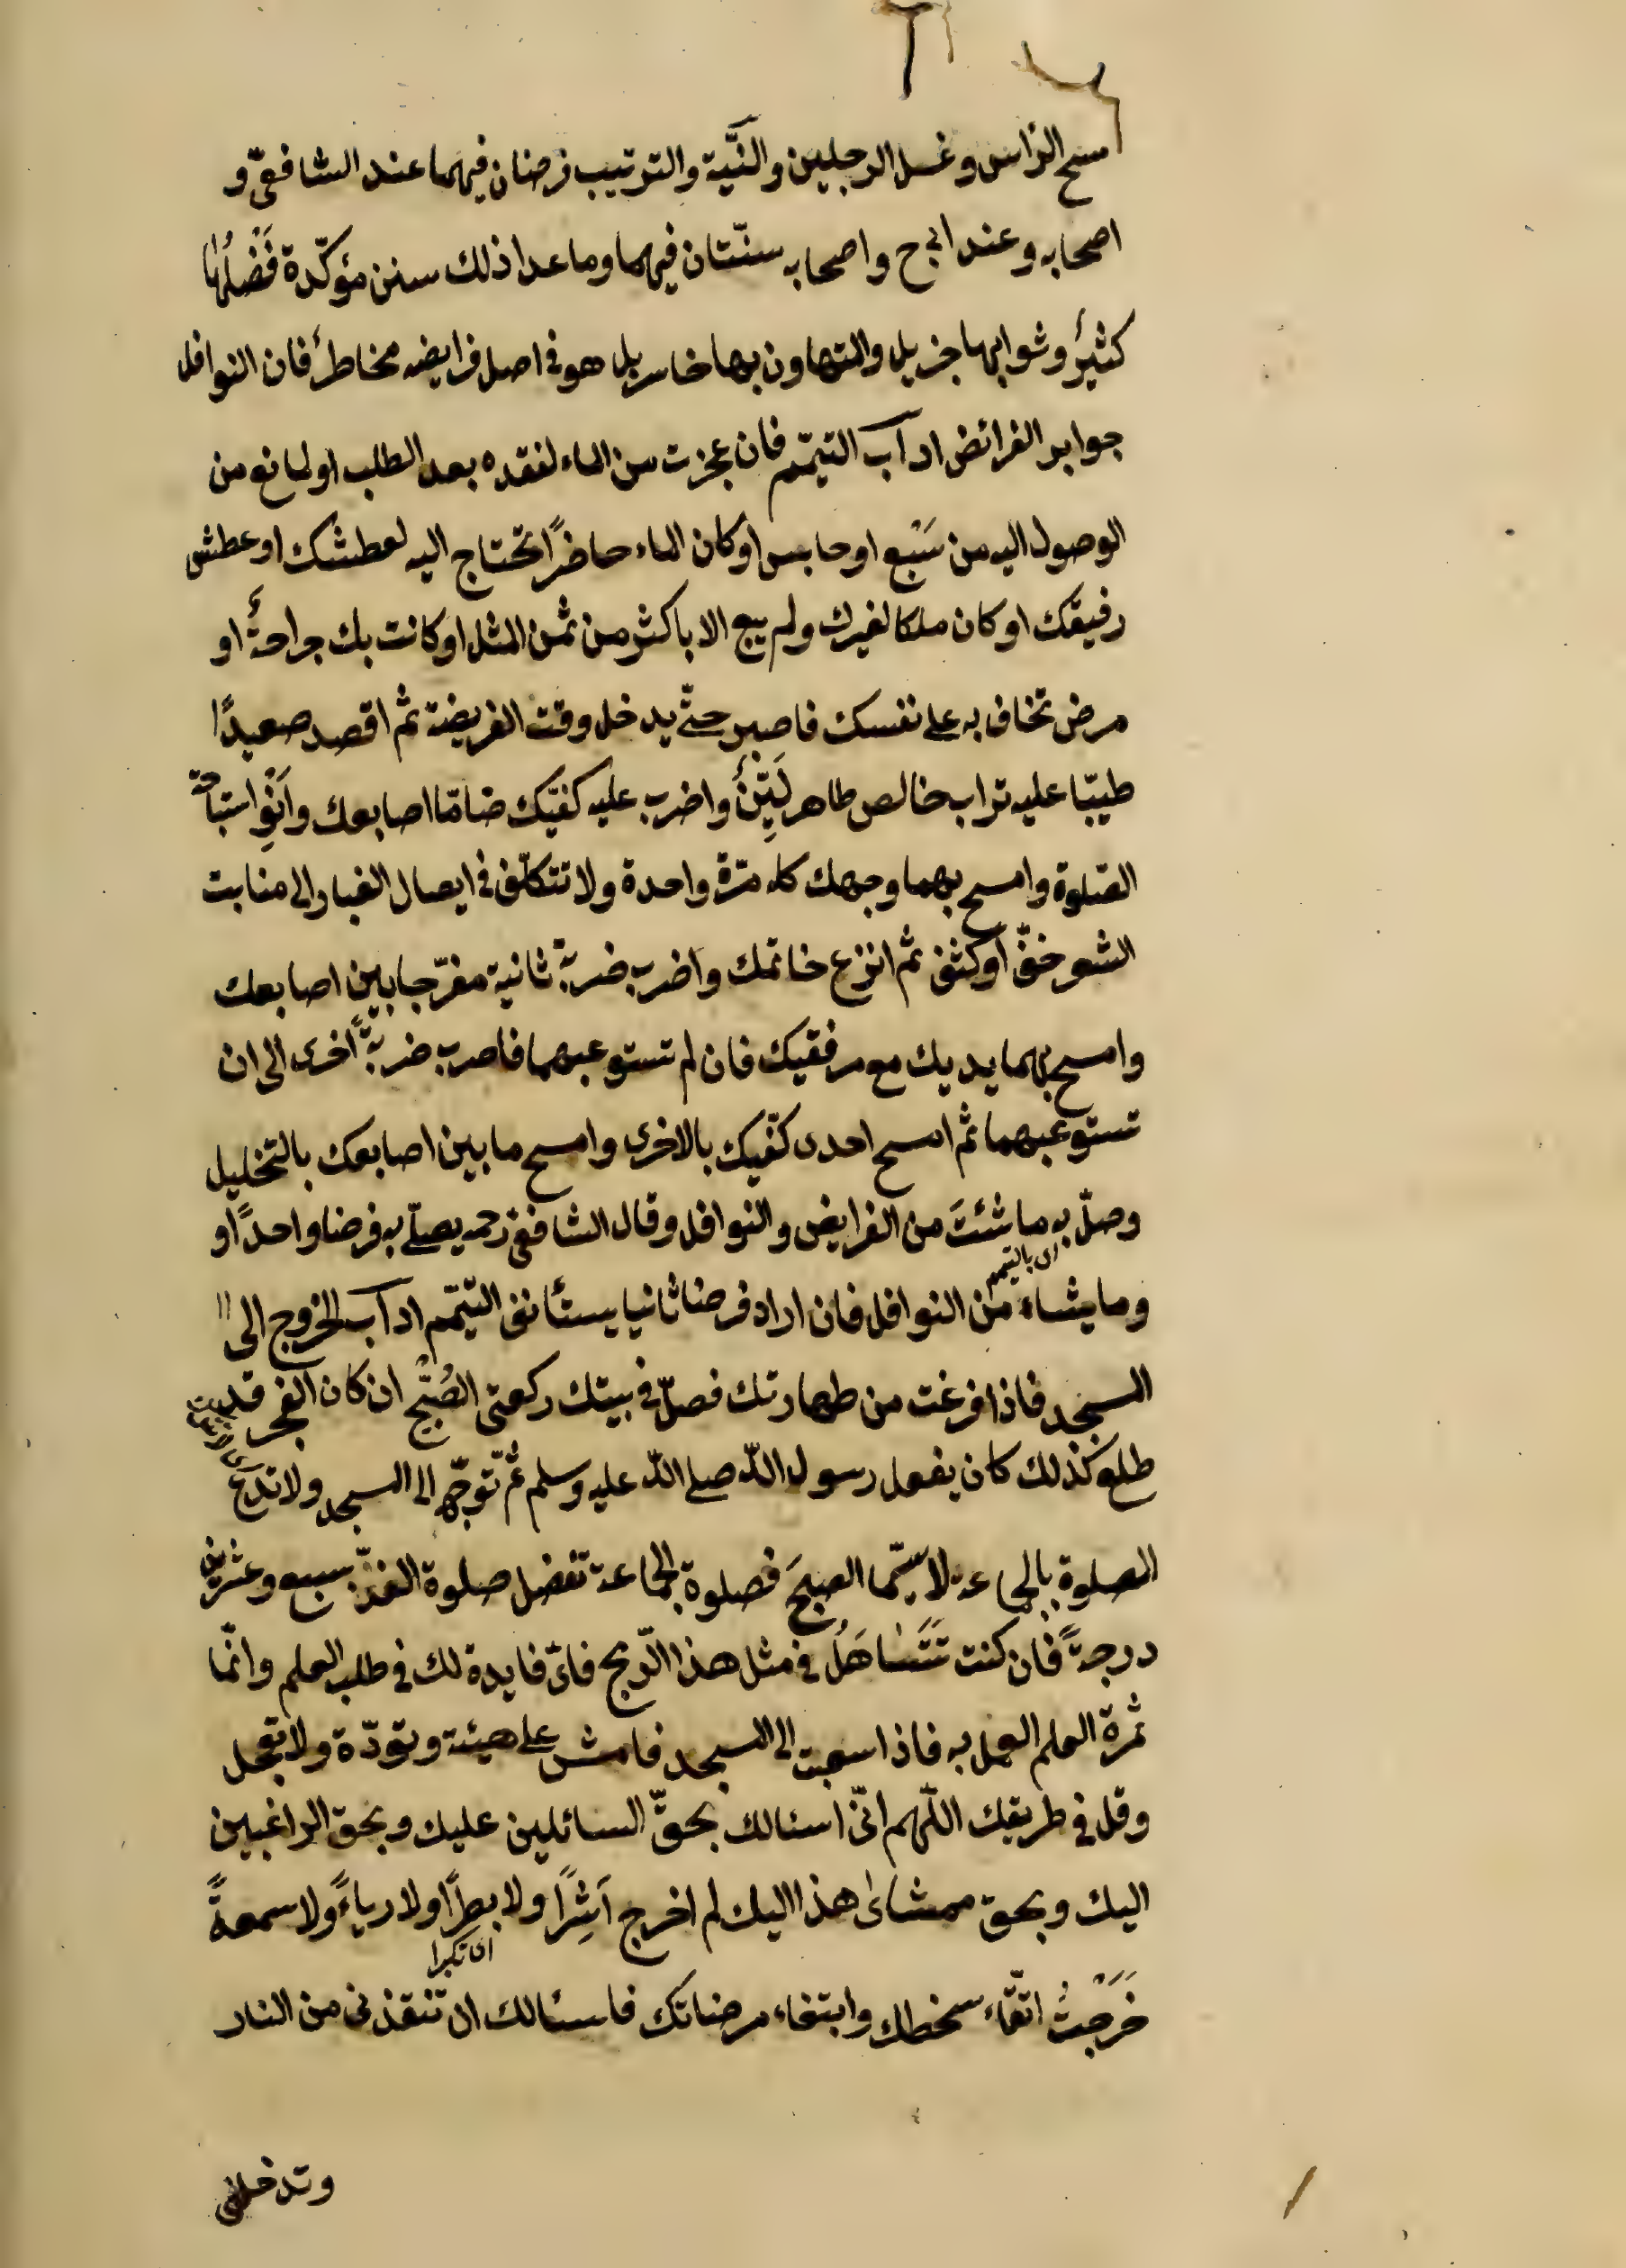 مسح الرّاس وغسل الرجلين والنيّة والترتيب فرضان فيهما عند الشافعىّ و
اصحابه وعند ابى ح واصحابه سنّتان فيهما وما عدا ذلك سنن مؤكّدة فَضْلُهَا
كثيرٌ وثوابها جزيل والمتهاون بها خاسر بل هو فى اصل فرايضه مخاطرٌ فان النوافل
جوابر الفرائض اداب التيمّم فان عجزت من الماء لفقده بعد الطلب او لمانع من
الوصول اليه من سَبْع او حابس او كان الماء حاضرًا تحتاج اليه لعطشك او عطش
رفيقك او كان ملكا لغيرك ولم يبع الا باكثر من ثمن المثل او كانت بك جراحةٌ او
مرض تخاف به على نفسك فاصبر حتّى يدخل وقت الفريضة ثم اقصد صعيدًا
طيبّا عليه تراب خالص طاهر لَيّنٌ واضرب عليه كفيّك ضامّا اصابعك وانْوِ استباحة
الصّلوة وامسح بهما وجهك كله مرّة واحدة ولا تتكلّف فى ايصال الغبار الى منابت
الشعر خفّ او كثف ثم انزع خاتمك واضرب ضربة ثانية مفرّجا بين اصابعك
وامسح بهما يديك مع مرفقيك فان لم تستوعبهما فاضرب ضربةً اخرى الى ان
تستوعبهما ثم امسح احدى كفّيك بالاخرى وامسح ما بين اصابعك بالتخليل
وصلّ به ما شئتَ من الفرايض والنوافل وقال الشافعىّ رحمه يصلّى به فرضا واحدًا و
اى بالتيمم
وما يشاء من النوافل فان اراد فرضا ثانيا يستأنف التيمّم اداب الخروج الى
المسجد فاذا فرغت من طهارتك فصلّ فى بيتك ركعتى الصُبْح ان كان الفجر قد
طلع كذلك كان يفعل رسول اللّه صلى اللّه عليه وسلم ثمّ توجّه الى المسجد ولا تدع
الصلوة بالجماعة لاسيّما الصبحَ فصلوة الجماعة تفضل صلوة الفذّ بسبع وعشرين
درجةً فان كنت تَتَسَاهَلُ فى مثل هذا الرّبح فاىّ فايدة لك فى طلب العلم وانّما
ثمرة العلم العمل به فاذا سعيت الى المسجد فامش على هيئة وتؤدّة ولا تعجل
وقل فى طريقك اللّهم انّى اسئالك بحقّ السائلين عليك وبحق الراغبين
اليك وبحق ممشاىٰ هذا اليك لم اخرج اَشِرًا ولا بطرًا ولا رياءً ولا سمعةً
اى تكبرا
خَرَجْتُ اتقّاء سخطك وابتغاء مرضاتك فاسئالك ان تنقذنى من النار
وتدخلنى